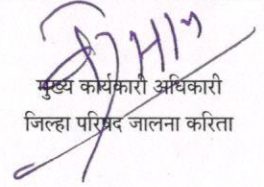 मुख्य कार्यकारी अधिकारी
जिल्हा परिषद जालना करिता